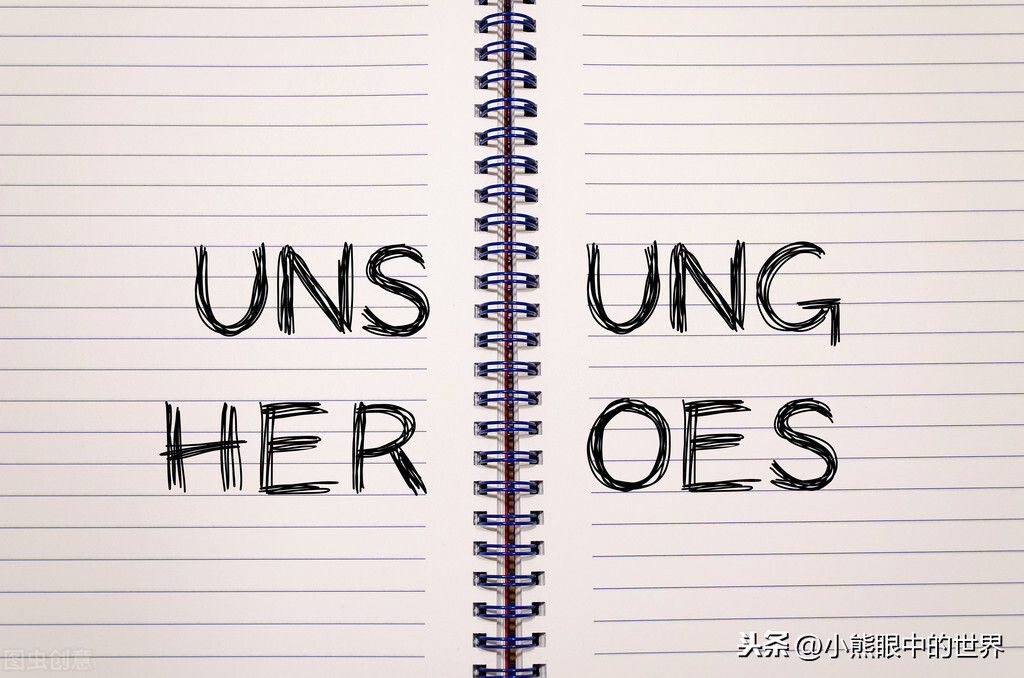 UNSUNG
HEROES
头条 @小熊眼中的世界
图虫创意